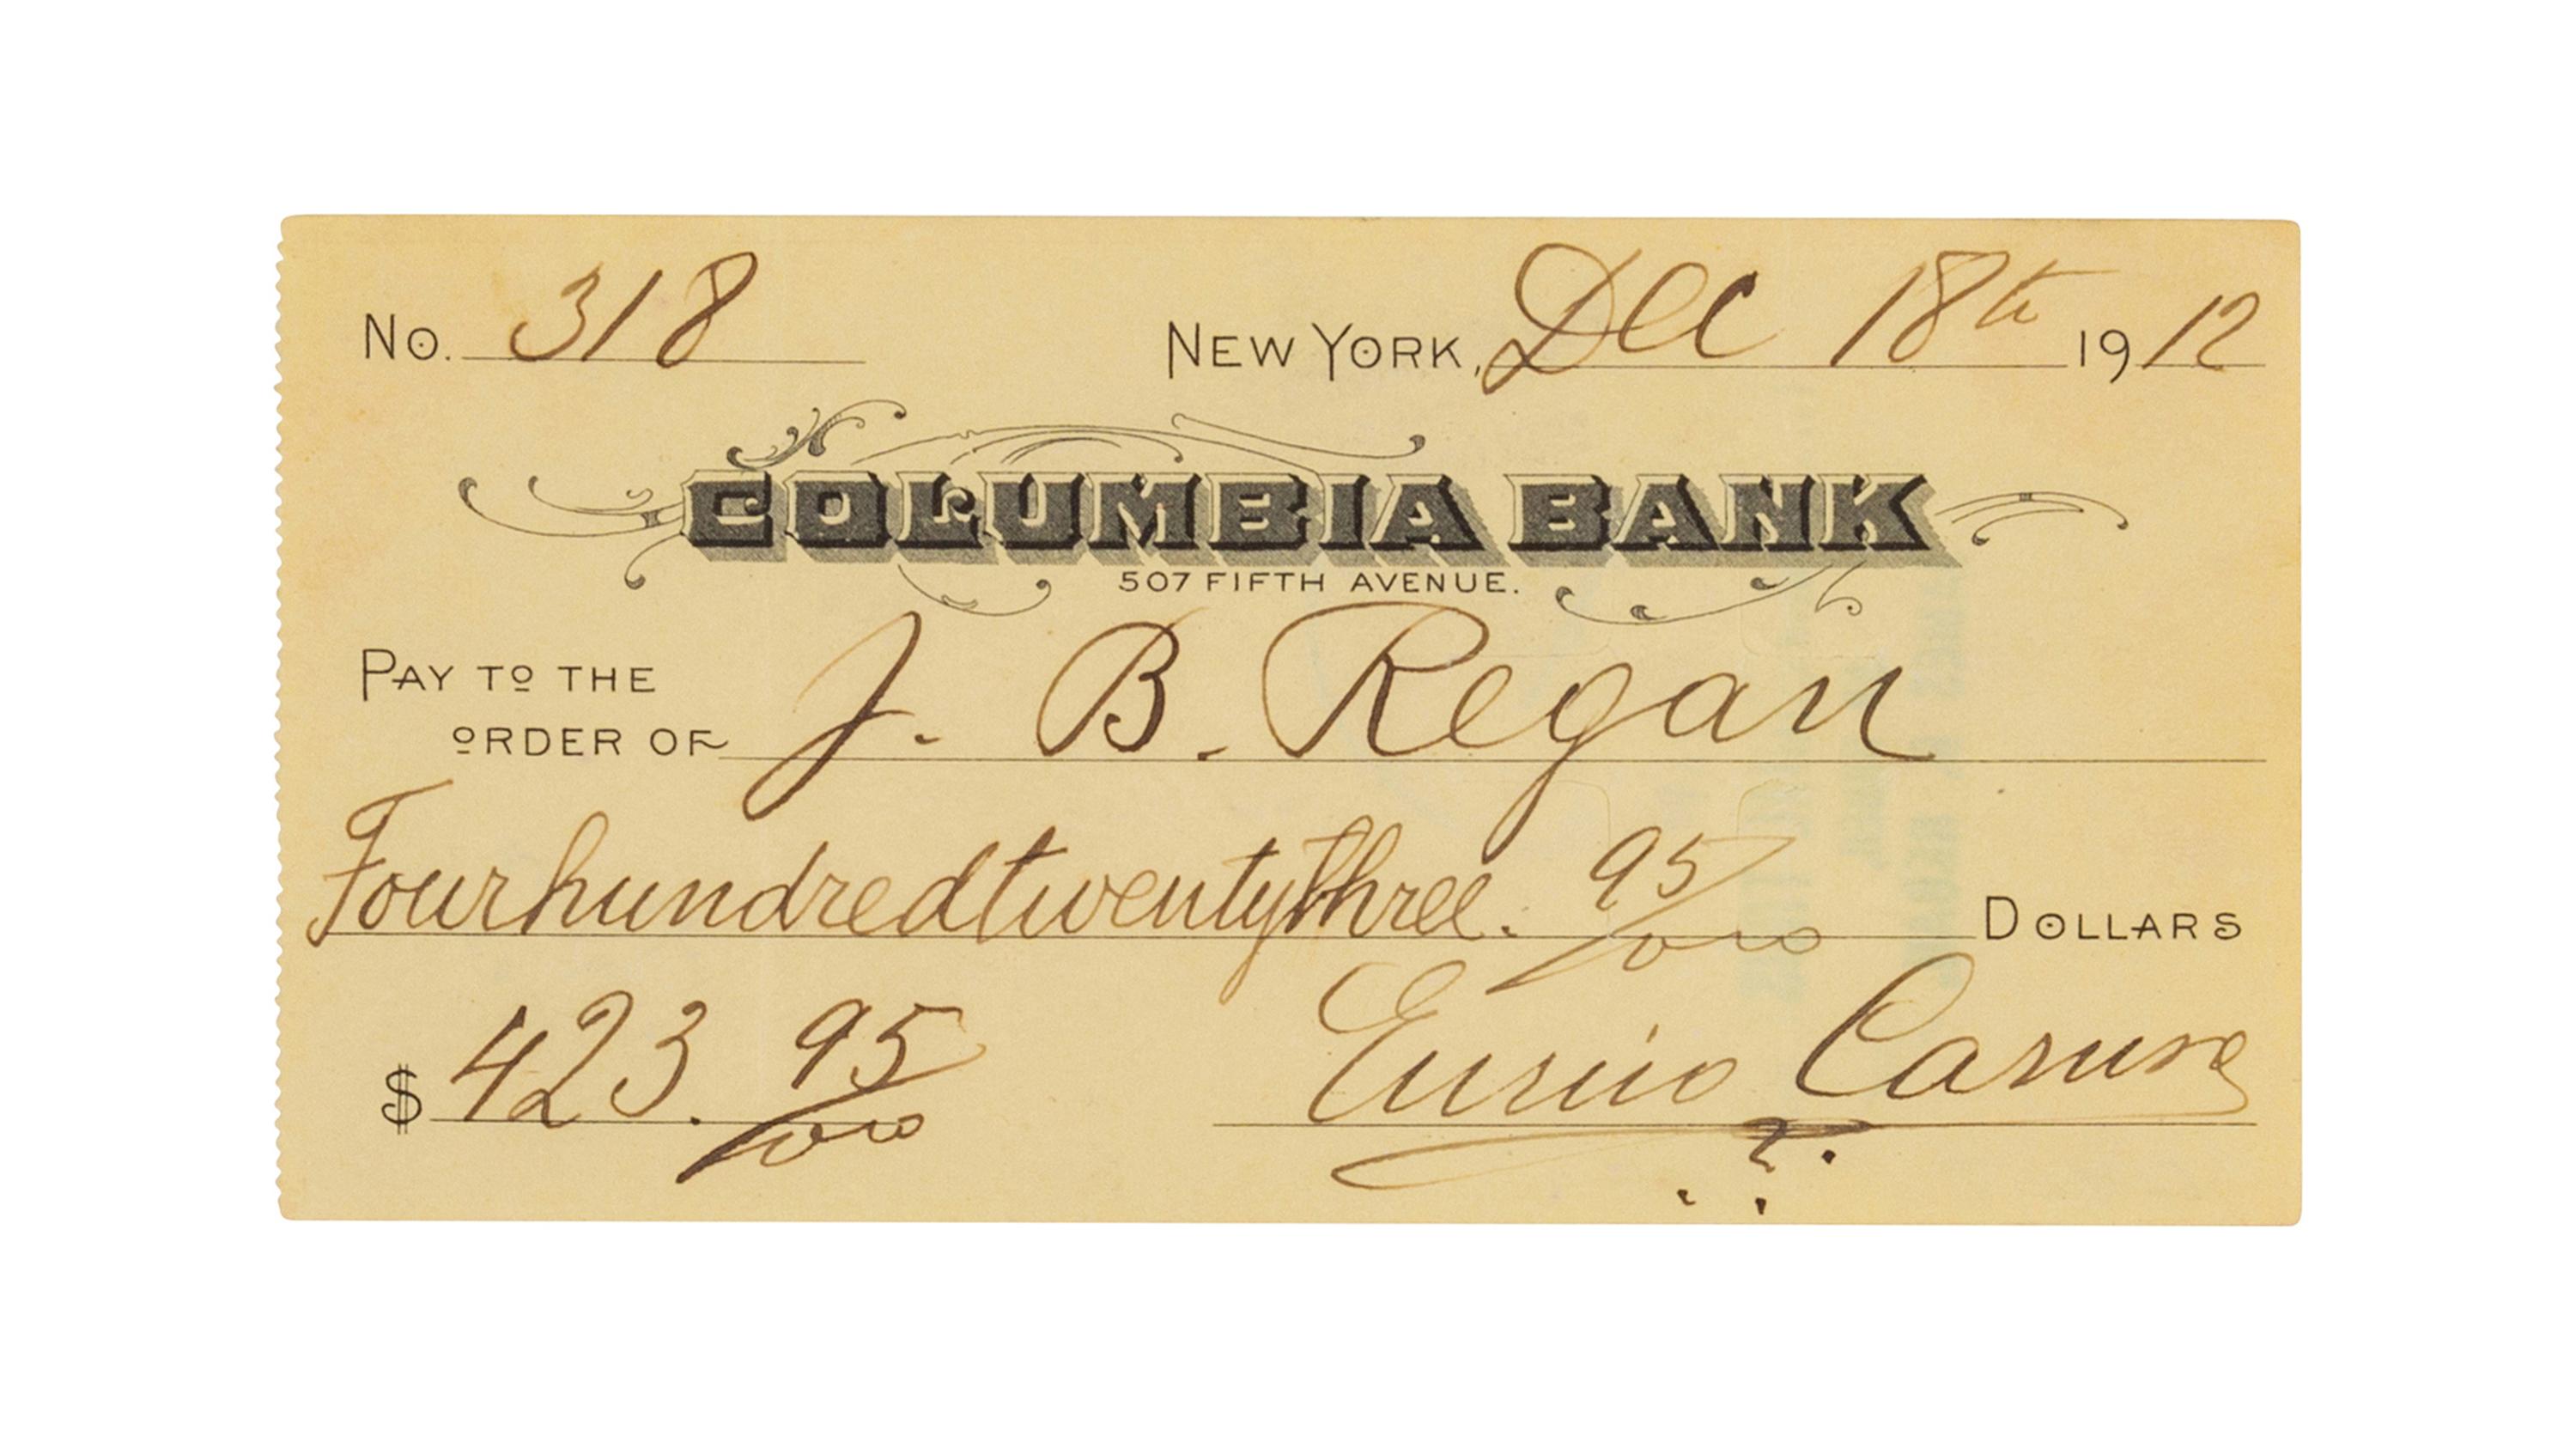 No. 318 New York, Dec 18th 1912
COLUMBIA BANK
507 FIFTH AVENUE.
PAY TO THE
ORDER OF J. B. Regan
Four hundred twenty three. 95/00 DOLLARS
$ 423. 95/00 Enrico Caruso